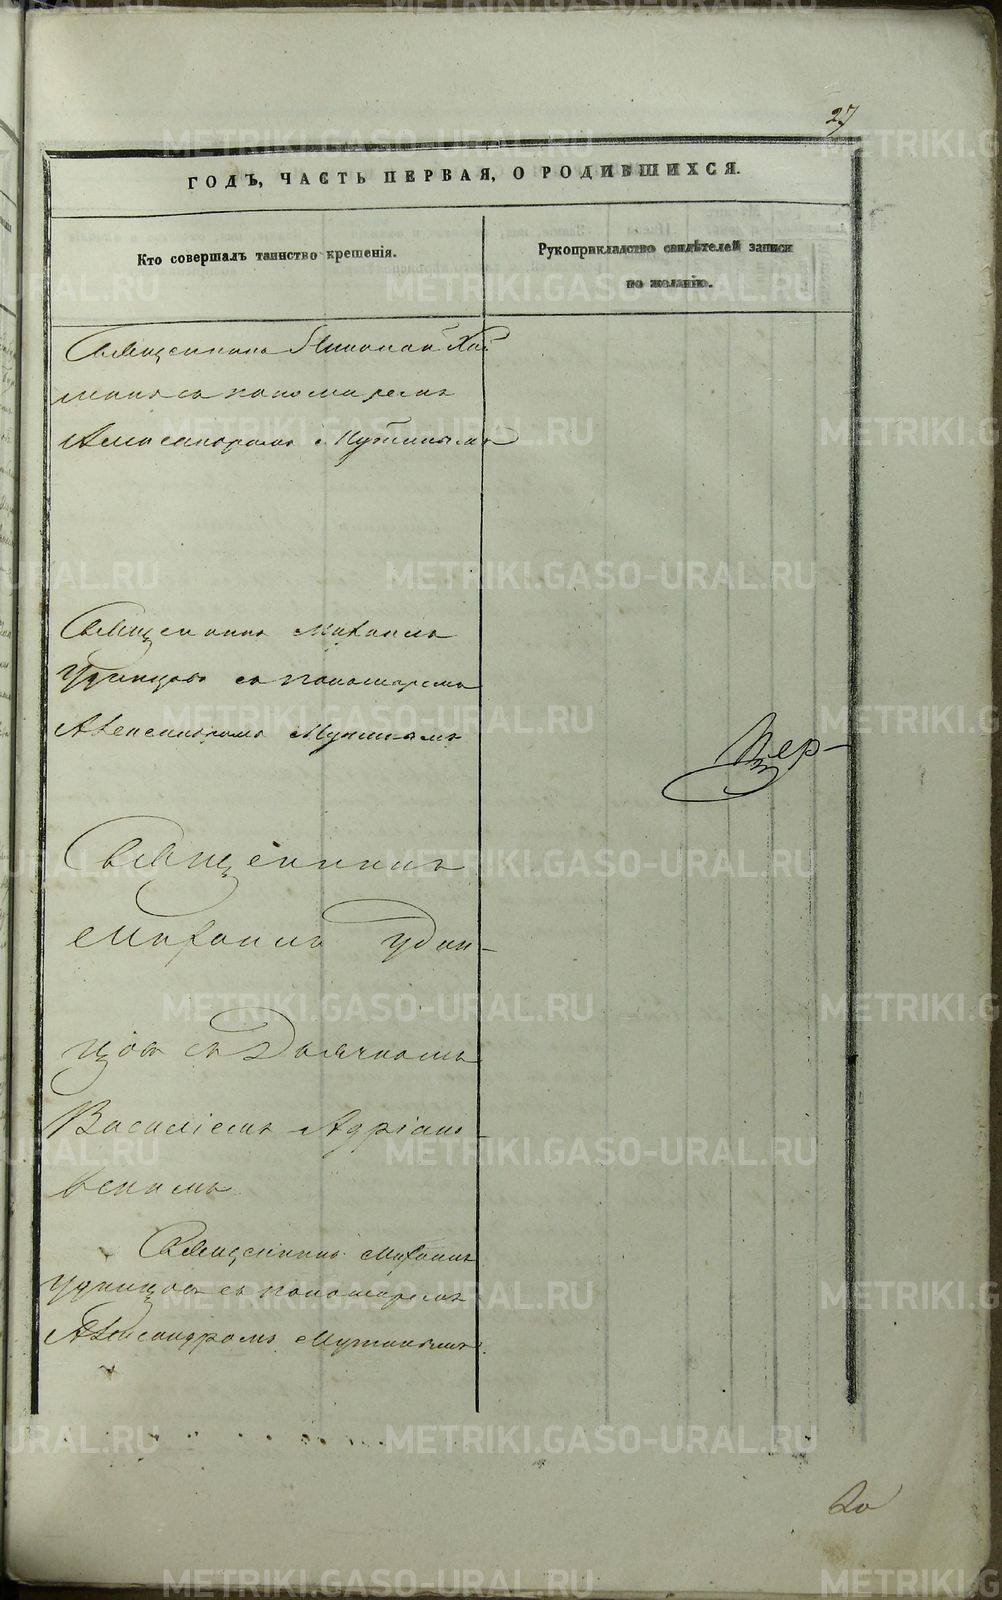 27
ГОДЪ, ЧАСТЬ ПЕРВАЯ, О РОДИВШИХСЯ.
Кто совершалъ таинство крещенія.
Рукоприкладство свидѣтелей записи
по желанію.
Священникъ Николай
съ пономаремъ
Александромъ
Священникъ Михаилъ
Удинцовъ съ пономаремъ
Александромъ
Священникъ
Михаилъ Удин-
цовъ съ Дьячкомъ
Василіемъ Адріанов-
скимъ
Священникъ Михаилъ
Удинцовъ съ пономаремъ
Александромъ
METRIKI.GASO-URAL.RU